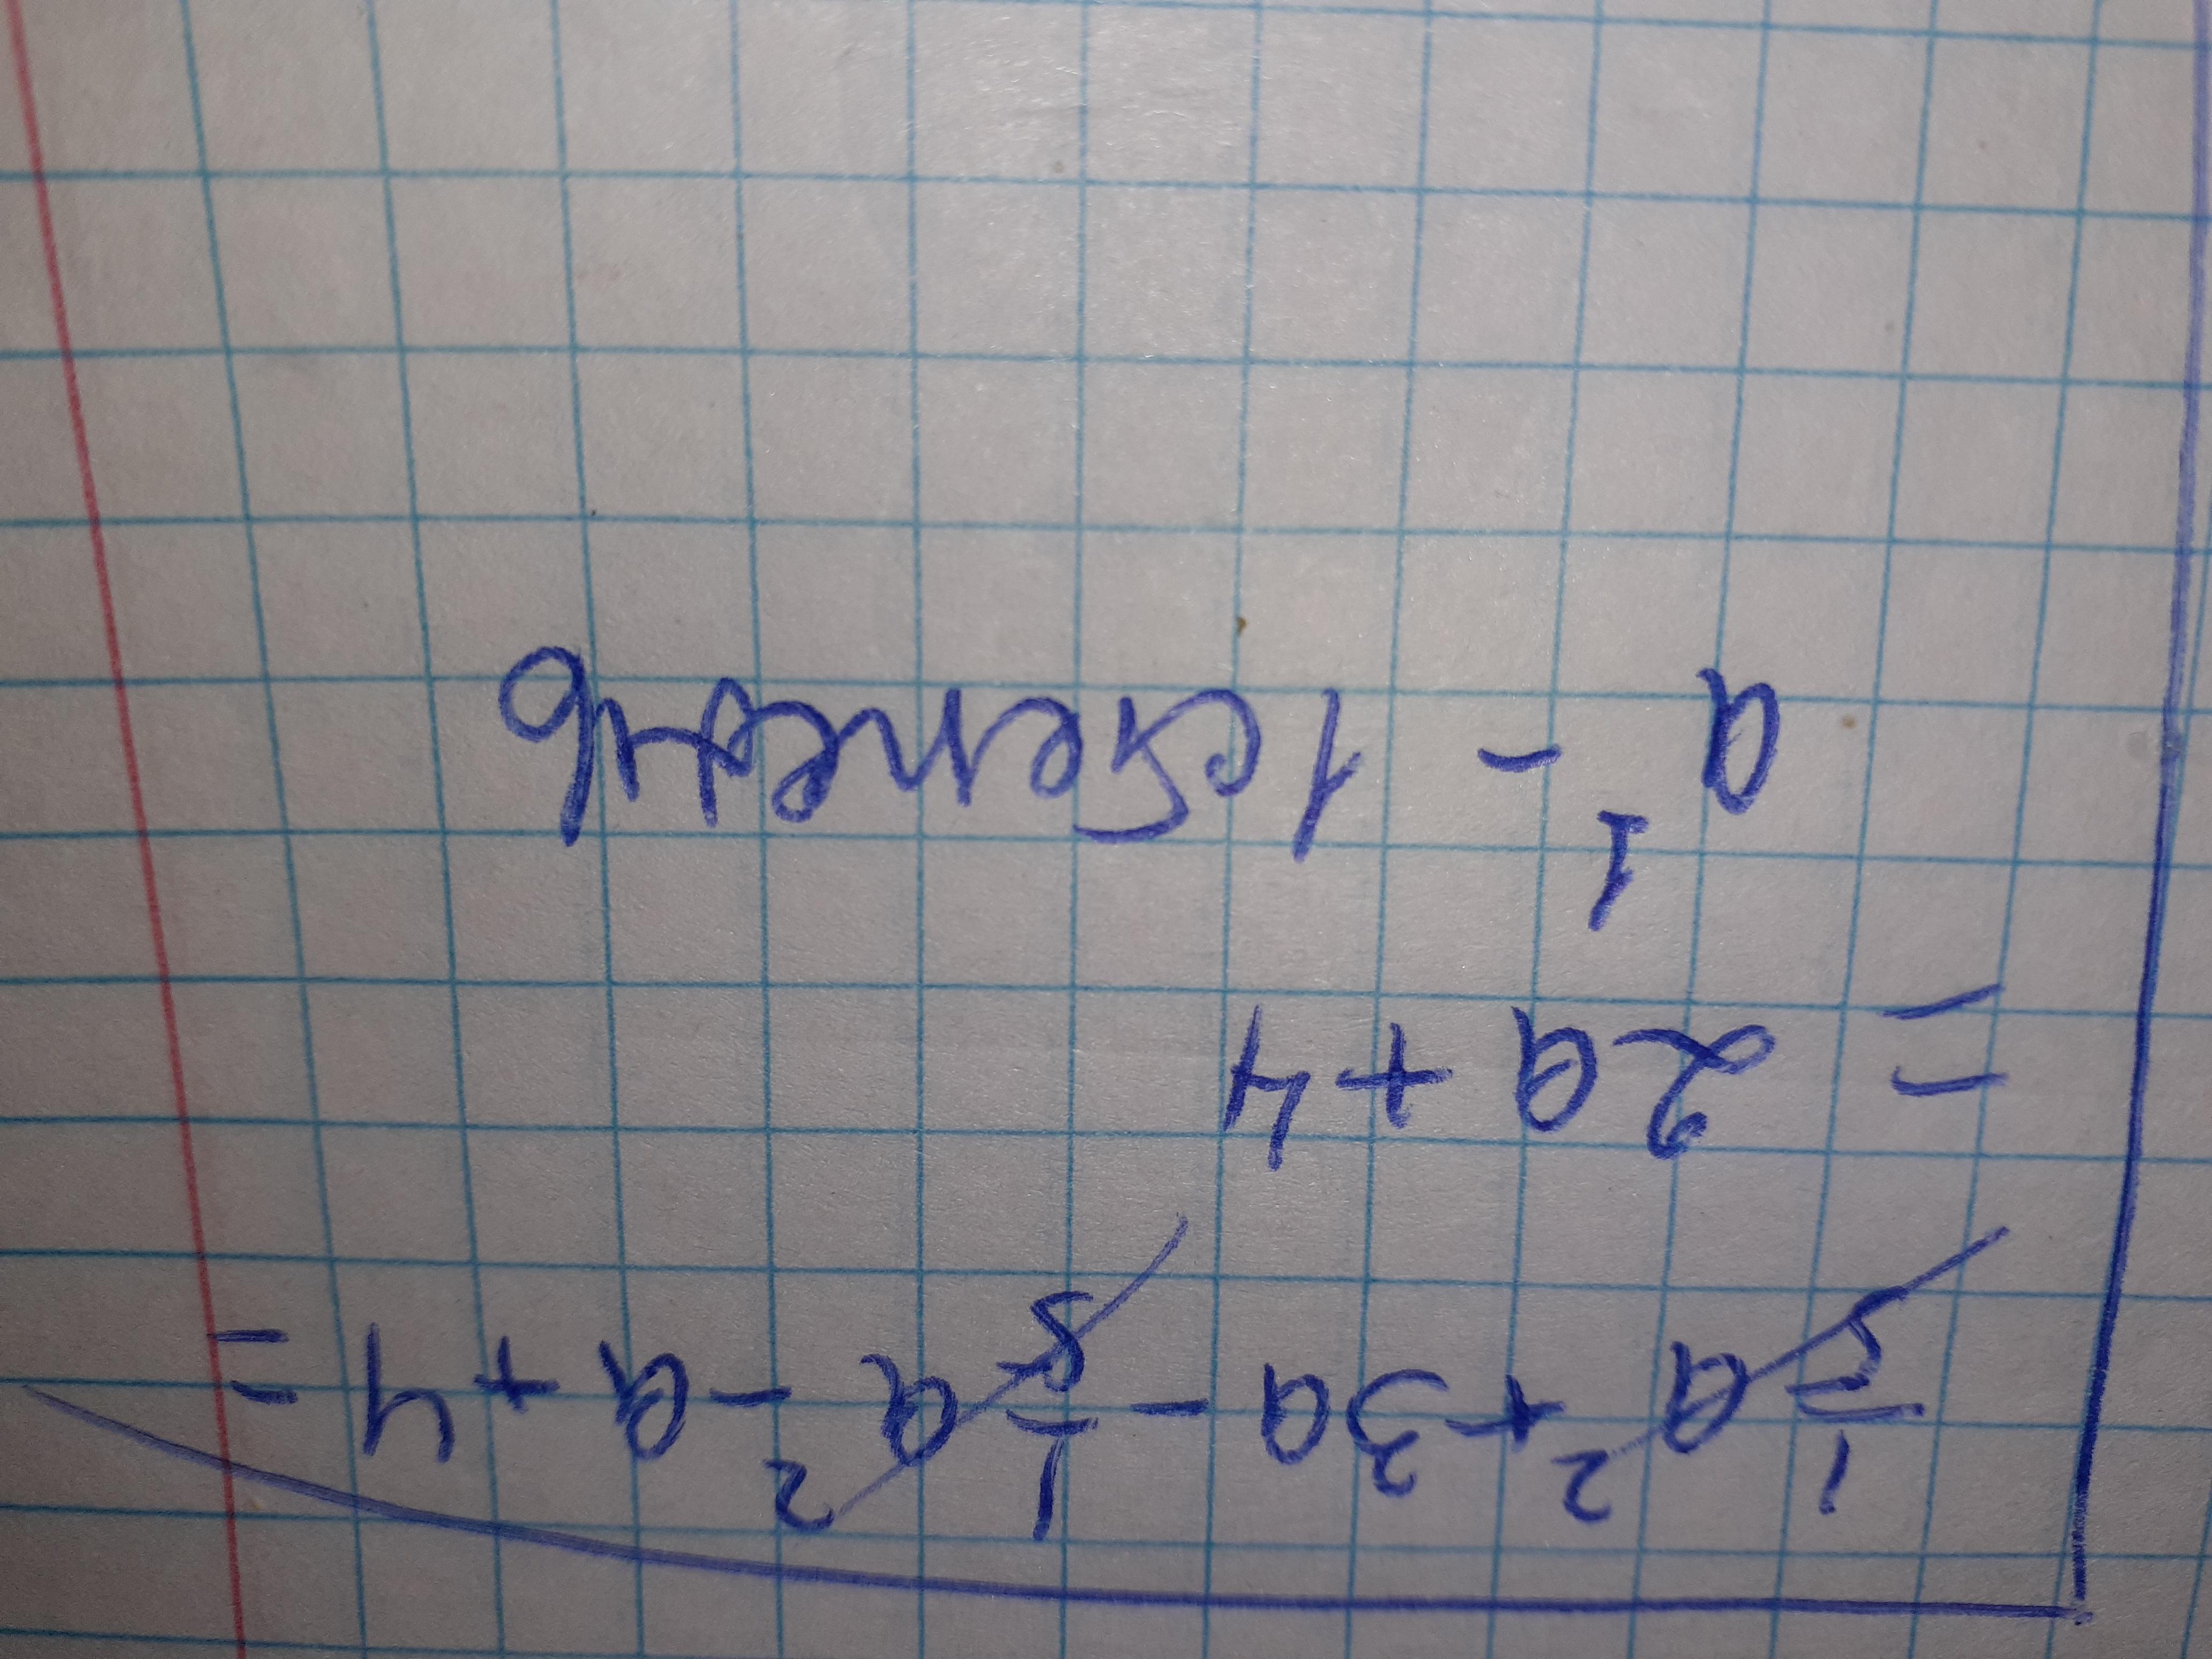 1/8 a² + 3a - 1/8 a² - a + 4 =
= 2a + 4
a¹ - 1 степень